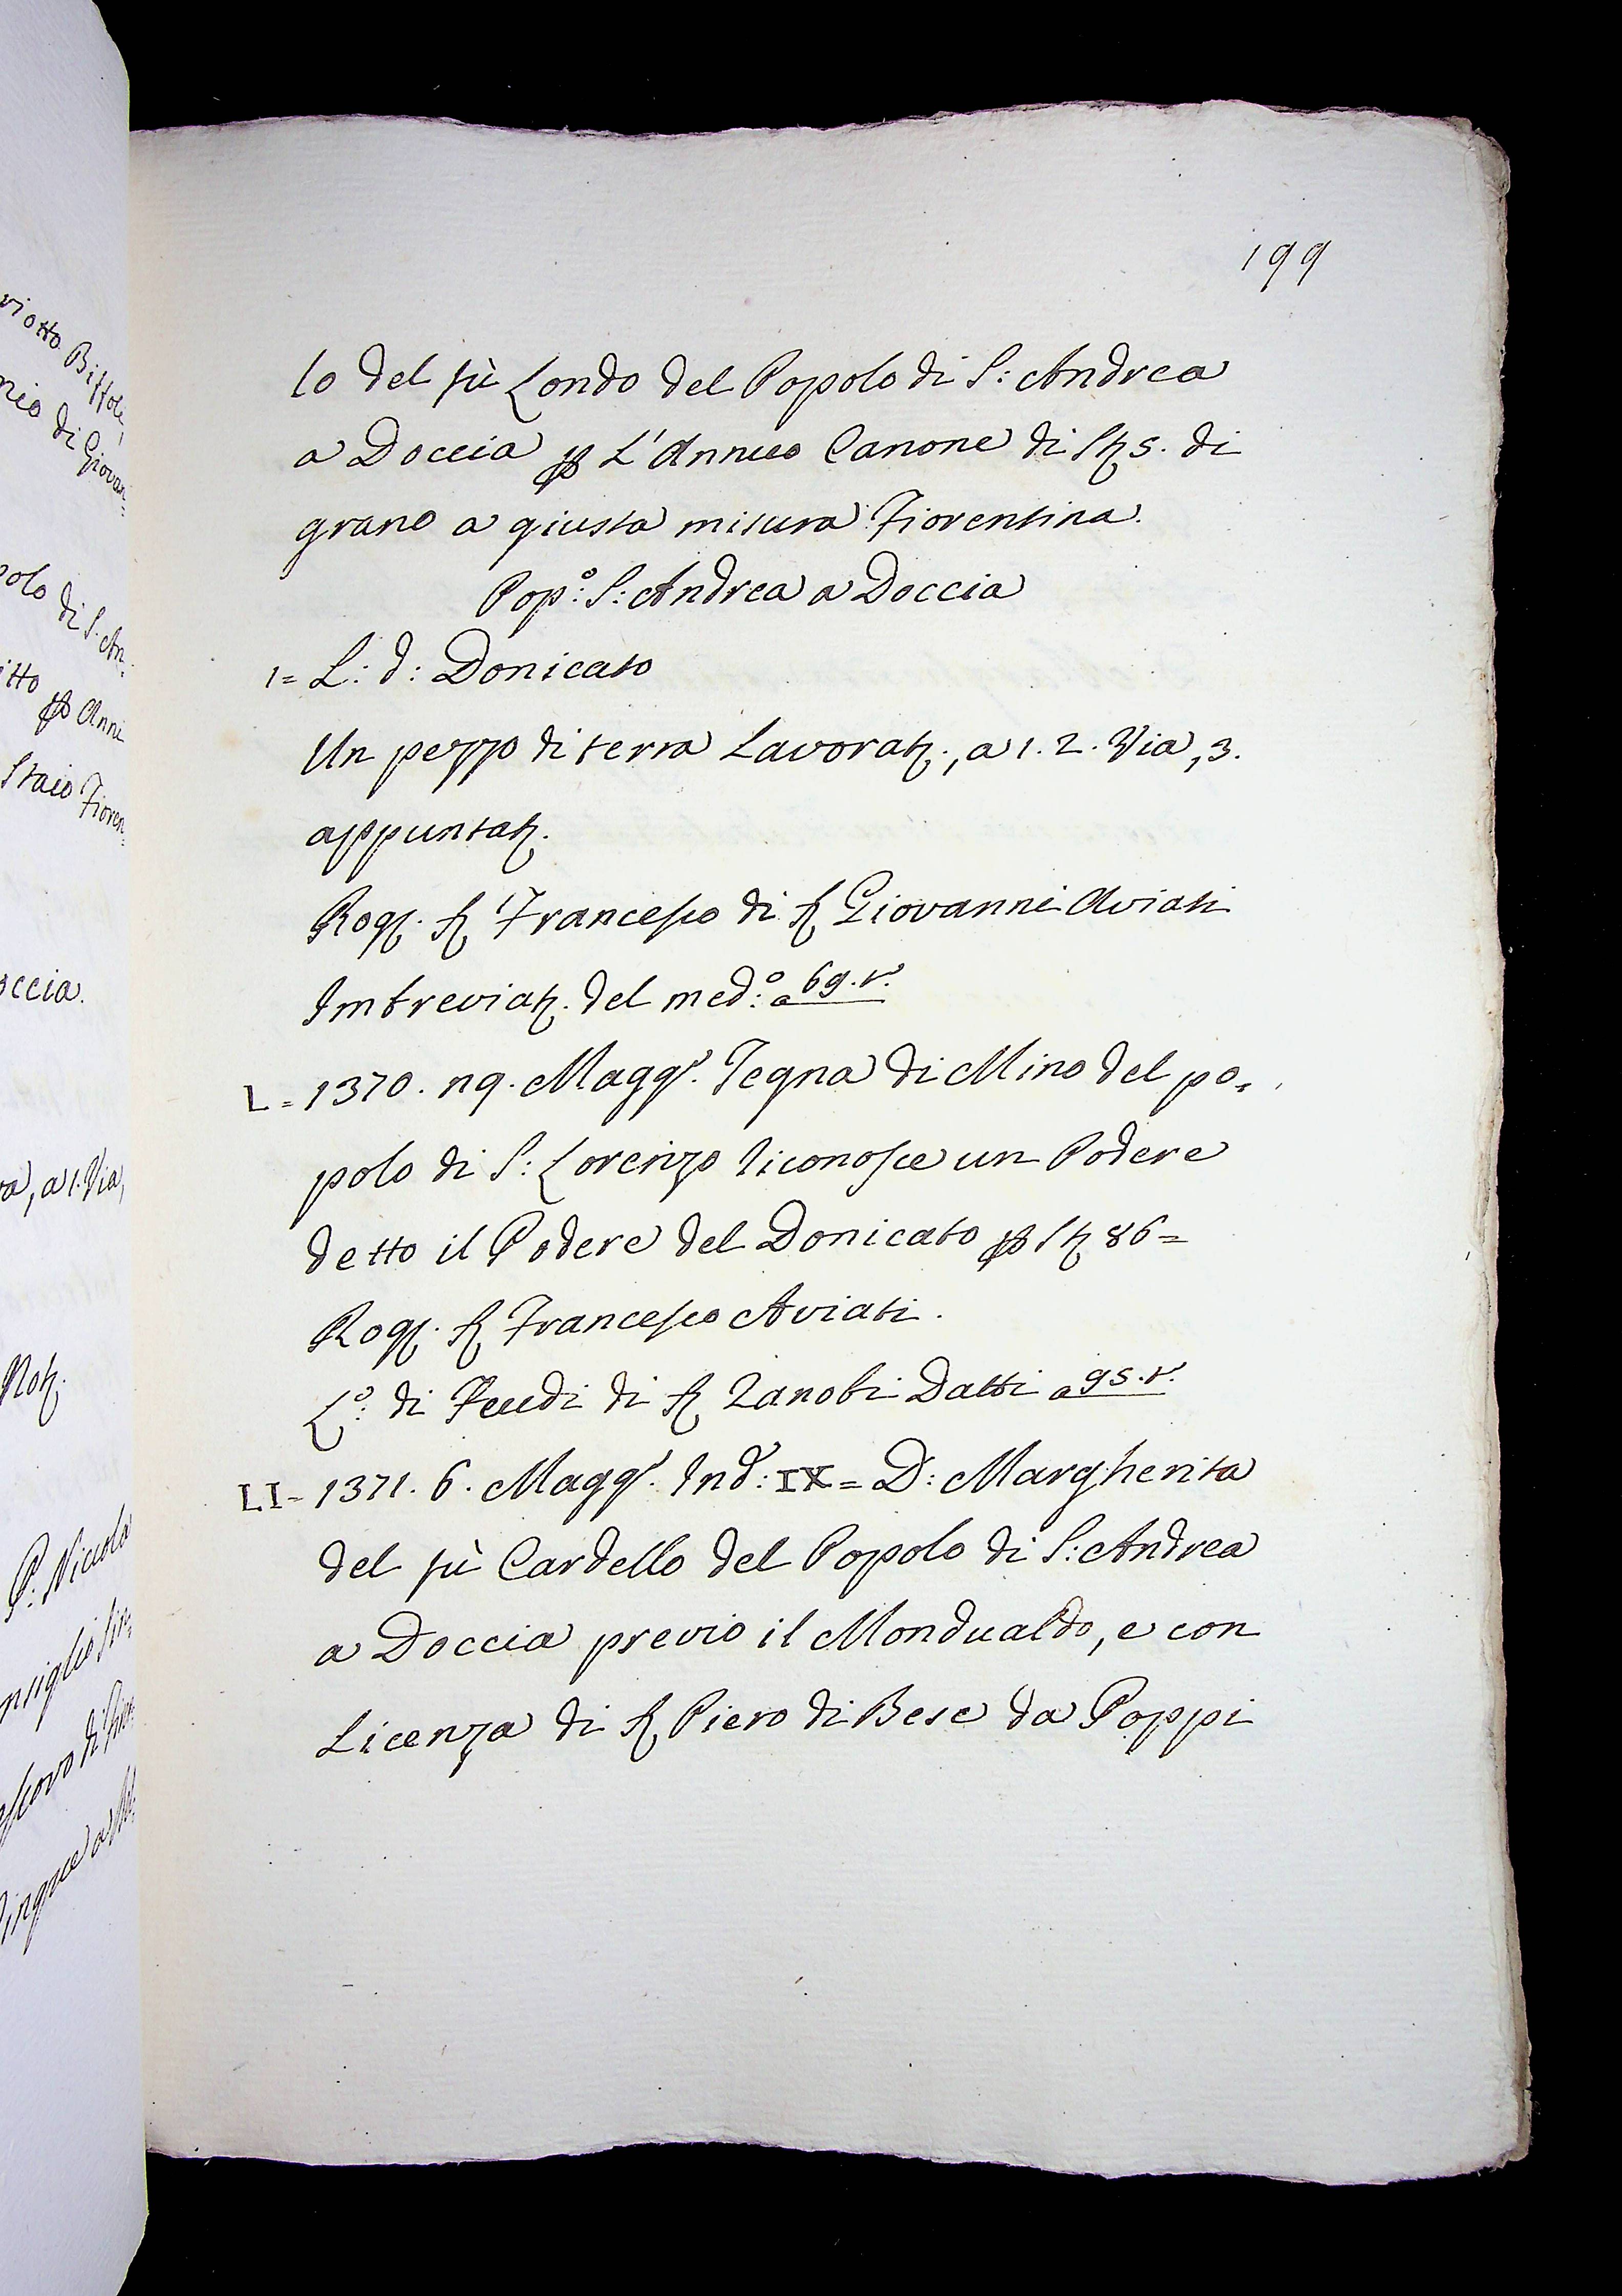 199
lo del fù Londo del Popolo di S: Andrea
a Doccia p L'Annuo Canone di St 5. di
grano a giusta misura Fiorentina.
Pop:º S: Andrea a Doccia
1= L: d: Donicato
Un pezzo di terra Lavorat., a 1. 2. Via, 3.
appuntat.
Rog. S Francesco di S Giovanni Aviati
Imbreviat. del med:º a 69. r.
L= 1370. Magg. Tegna di Mino del po=
polo di S: Lorenzo riconosce un Podere
detto il Podere del Donicato p St 86=
Rog. S Francesco Aviati.
L:º di Feudi di S Zanobi Datti a 95. r.
LI= 1371. 6. Magg. Ind: IX= D: Margherita
del fù Cardello del Popolo di S: Andrea
a Doccia previo il Mondualdo, e con
Licenza di S Piero di Bese da Poppi
viotto Biffoli,
nio di Giovan=
polo di S. An=
itto p Anni
Staio Fioren=
occia.
ra, a 1. Via,
Not.
P: Niccola
nsiglio
scovo di
Cinque a